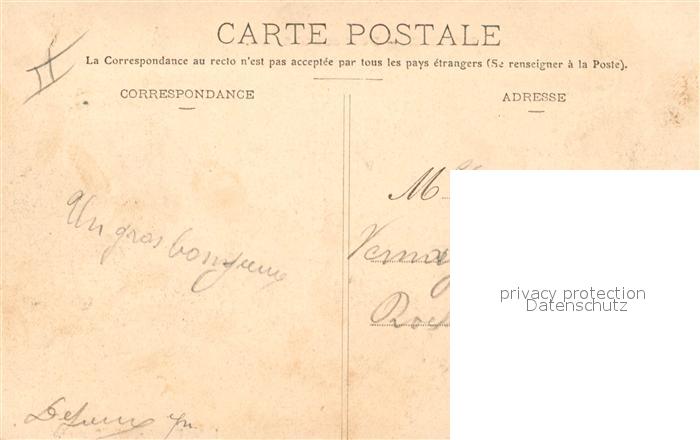 CARTE POSTALE
La Correspondance au recto n'est pas acceptée par tous les pays étrangers (Se renseigner à la Poste).
II
CORRESPONDANCE
ADRESSE
Un gros bonjour
privacy protection
Datenschutz